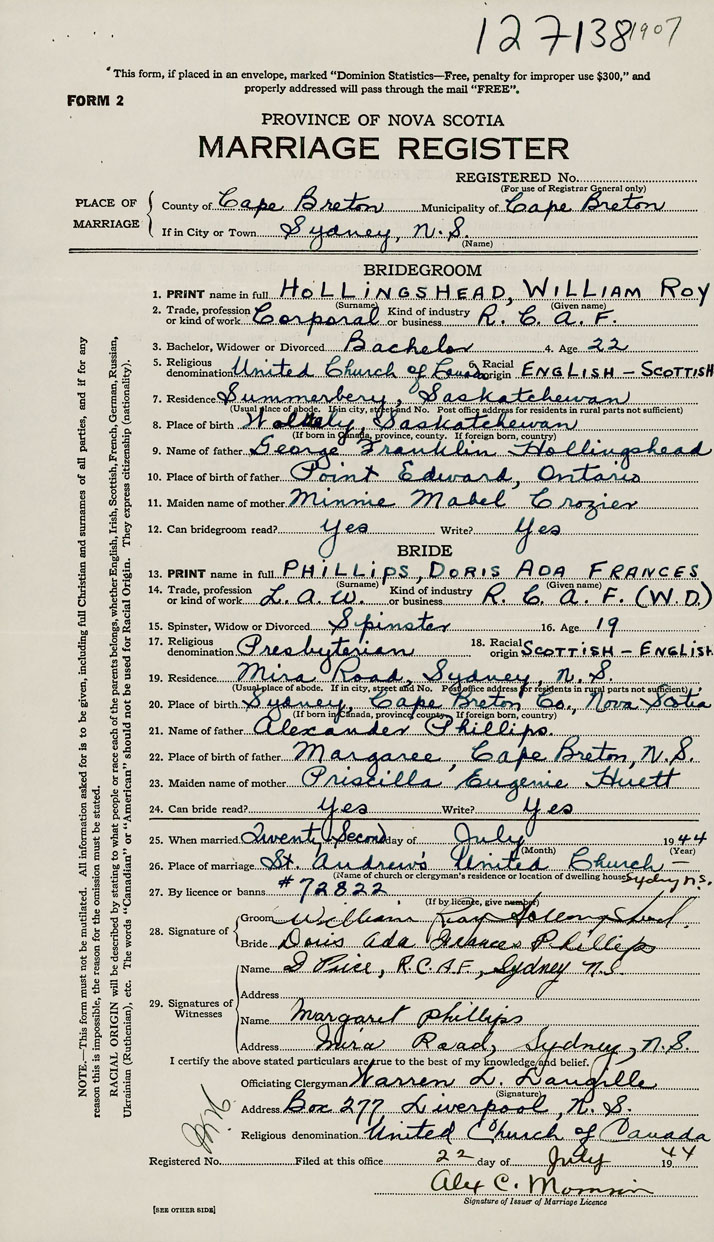 127138 1907
* This form, if placed in an envelope, marked "Dominion Statistics—Free, penalty for improper use $300," and
properly addressed will pass through the mail "FREE".
FORM 2
PROVINCE OF NOVA SCOTIA
MARRIAGE REGISTER
REGISTERED No.
(For use of Registrar General only)
PLACE OF MARRIAGE
County of Cape Breton Municipality of Cape Breton
If in City or Town Sydney, N.S.
(Name)
BRIDEGROOM
1. PRINT name in full HOLLINGSHEAD, WILLIAM ROY
(Surname) (Given name)
2. Trade, profession or kind of work Corporal Kind of industry or business R.C.A.F.
3. Bachelor, Widower or Divorced Bachelor 4. Age 22
5. Religious denomination United Church of Canada 6. Racial origin ENGLISH - SCOTTISH
7. Residence Summerbery, Saskatchewan
(Usual place of abode. If in city, street and No. Post office address for residents in rural parts not sufficient)
8. Place of birth Saskatchewan
(If born in Canada, province, county. If foreign born, country)
9. Name of father George Franklin Hollingshead
10. Place of birth of father Point Edward, Ontario
11. Maiden name of mother Minnie Mabel Crozier
12. Can bridegroom read? Yes Write? Yes
BRIDE
13. PRINT name in full PHILLIPS, DORIS ADA FRANCES
(Surname) (Given name)
14. Trade, profession or kind of work L.A.W. Kind of industry or business R.C.A.F. (W.D.)
15. Spinster, Widow or Divorced Spinster 16. Age 19
17. Religious denomination Presbyterian 18. Racial origin SCOTTISH - ENGLISH
19. Residence Mira Road, Sydney, N.S.
(Usual place of abode. If in city, street and No. Post office address for residents in rural parts not sufficient)
20. Place of birth Sydney, Cape Breton Co., Nova Scotia
(If born in Canada, province, county. If foreign born, country)
21. Name of father Alexander Phillips.
22. Place of birth of father Margaree Cape Breton, N.S.
23. Maiden name of mother Priscilla Eugenie Huett
24. Can bride read? Yes Write? Yes
25. When married Twenty Second day of July 1944
(Month) (Year)
26. Place of marriage St. Andrew's United Church — Sydney N.S.
(Name of church or clergyman's residence or location of dwelling house)
27. By licence or banns #72822
(If by licence, give number)
28. Signature of
Groom William Roy Hollingshead
Bride Doris Ada Frances Phillips
29. Signatures of Witnesses
Name Price, R.C.A.F., Sydney N.S.
Address
Name Margaret Phillips
Address Mira Road, Sydney, N.S.
I certify the above stated particulars are true to the best of my knowledge and belief.
Officiating Clergyman Warren L. Langille
(Signature)
Address Box 277 Liverpool, N.S.
Religious denomination United Church of Canada
Registered No. Filed at this office 22 day of July 1944
Alex C.
Signature of Issuer of Marriage Licence
[SEE OTHER SIDE]
NOTE.—This form must not be mutilated. All information asked for is to be given, including full Christian and surnames of all parties, and if for any
reason this is impossible, the reason for the omission must be stated.
RACIAL ORIGIN will be described by stating to what people or race each of the parents belongs, whether English, Irish, Scottish, French, German, Russian,
Ukrainian (Ruthenian), etc. The words "Canadian" or "American" should not be used for Racial Origin. They express citizenship (nationality).